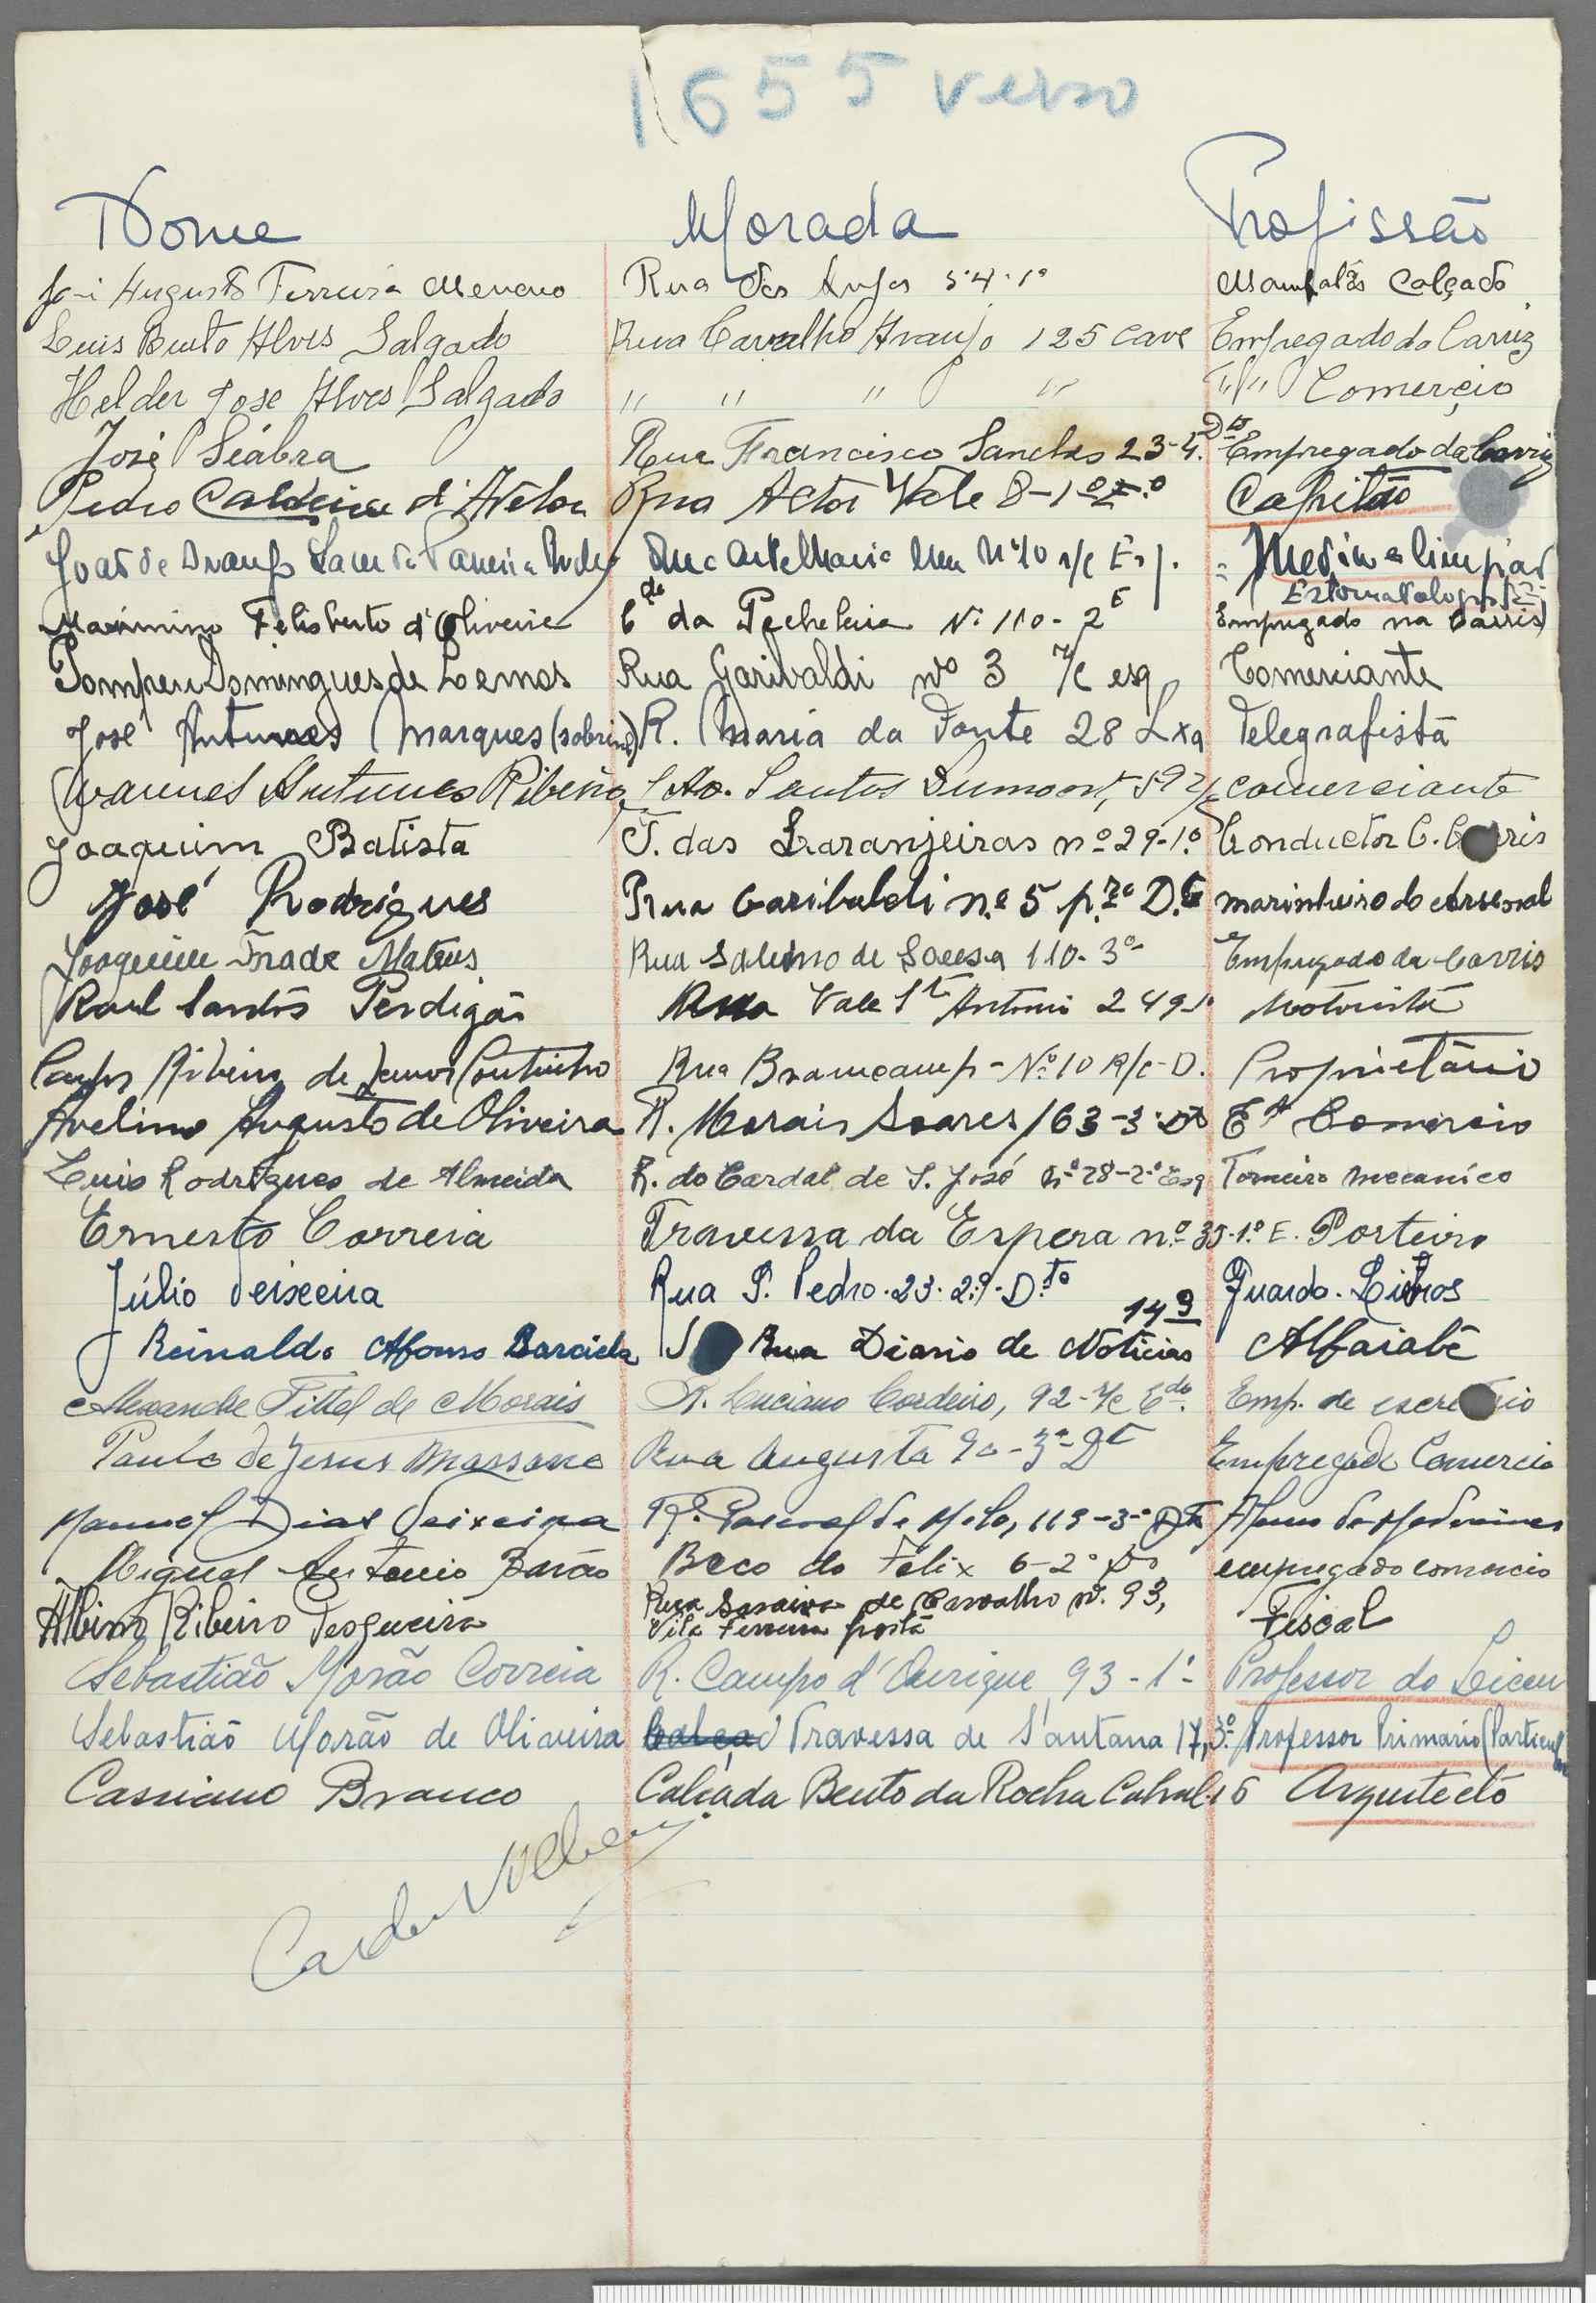 1655 verso
Nome Morada Profissão
José Augusto Ferreira Rua dos Anjos 54-1º Calçado
Luis Bento Alves Salgado Rua Carvalho Araujo 125 cave Empregado da Carriz
Helder Jose Alves Salgado " " " " " " Comerçio
José Seábra Rua Francisco Sanches 23-4. Dto Empregado da Carriz
Pedro Rua Actor Vale 8-1º E.º Capitão
João de Araujo Nº 10 r/c Esq. Estomatologista
Maximino Felisberto d'Oliveira da Nº 110-2 E Empregado na Carris
Pompeu Domingues de Lemos Rua Garivaldi nº 3 r/c esq Comerciante
José Antunes Marques (sobrinho) R. Maria da Fonte 28 Lxa Telegrafista
Manuel Antunes Ribeiro Av. Santos Dumont, 59 r/c comerciante
Joaquim Batista T. das Laranjeiras nº 29-1.º Conductor C. Carris
José Rodrigues Rua Garibaldi n.º 5 D.to marinheiro do Arsenal
Joaquim Frade Mateus Rua de Sousa 110-3º Empregado da Carris
Raul Santos Perdigão Rua Vale Sto Antonio 249-1º Motorista
Carlos Ribeiro de Lemos Coutinho Rua Braamcamp - Nº 10 R/c-D. Proprietário
Avelino Augusto de Oliveira R. Morais Soares 163-3º Dto Comercio
Luis Rodrigues de Almeida R. do Cardal de S. José Nº 28-2º Esq Torneiro mecanico
Ernesto Correia Travessa da Espera n.º 35-1.º E. Porteiro
Júlio Teixeira Rua S. Pedro. 23. 2.º-D.to Guarda. Livros
Reinaldo Afonso Rua Diario de Noticias 149 Alfaiate
Alexandre Tittel de Morais R. Luciano Cordeiro, 92-r/c Edo. Emp. de escritório
Paulo de Jesus Massano Rua Augusta 90-3º-Dt Empregado Comercio
Manuel Dias Teixeira R. Pascoal de Melo, 119-3-º Dto
Miguel Antonio Barão Beco do Felix 6-2º Do empregado comercio
Albino Ribeiro Nogueira Rua Saraiva de Carvalho nº. 93, Fiscal
Vila Ferreira porta
Sebastião Morão Correia R. Campo d'Ourique 93-1º Professor do Liceu
Sebastião Morão de Oliveira Calçad Travessa de Sant'ana 17,3º Professor Primario (Particular
Cassiano Branco Calçada Bento da Rocha Cabral 16 Arquitecto